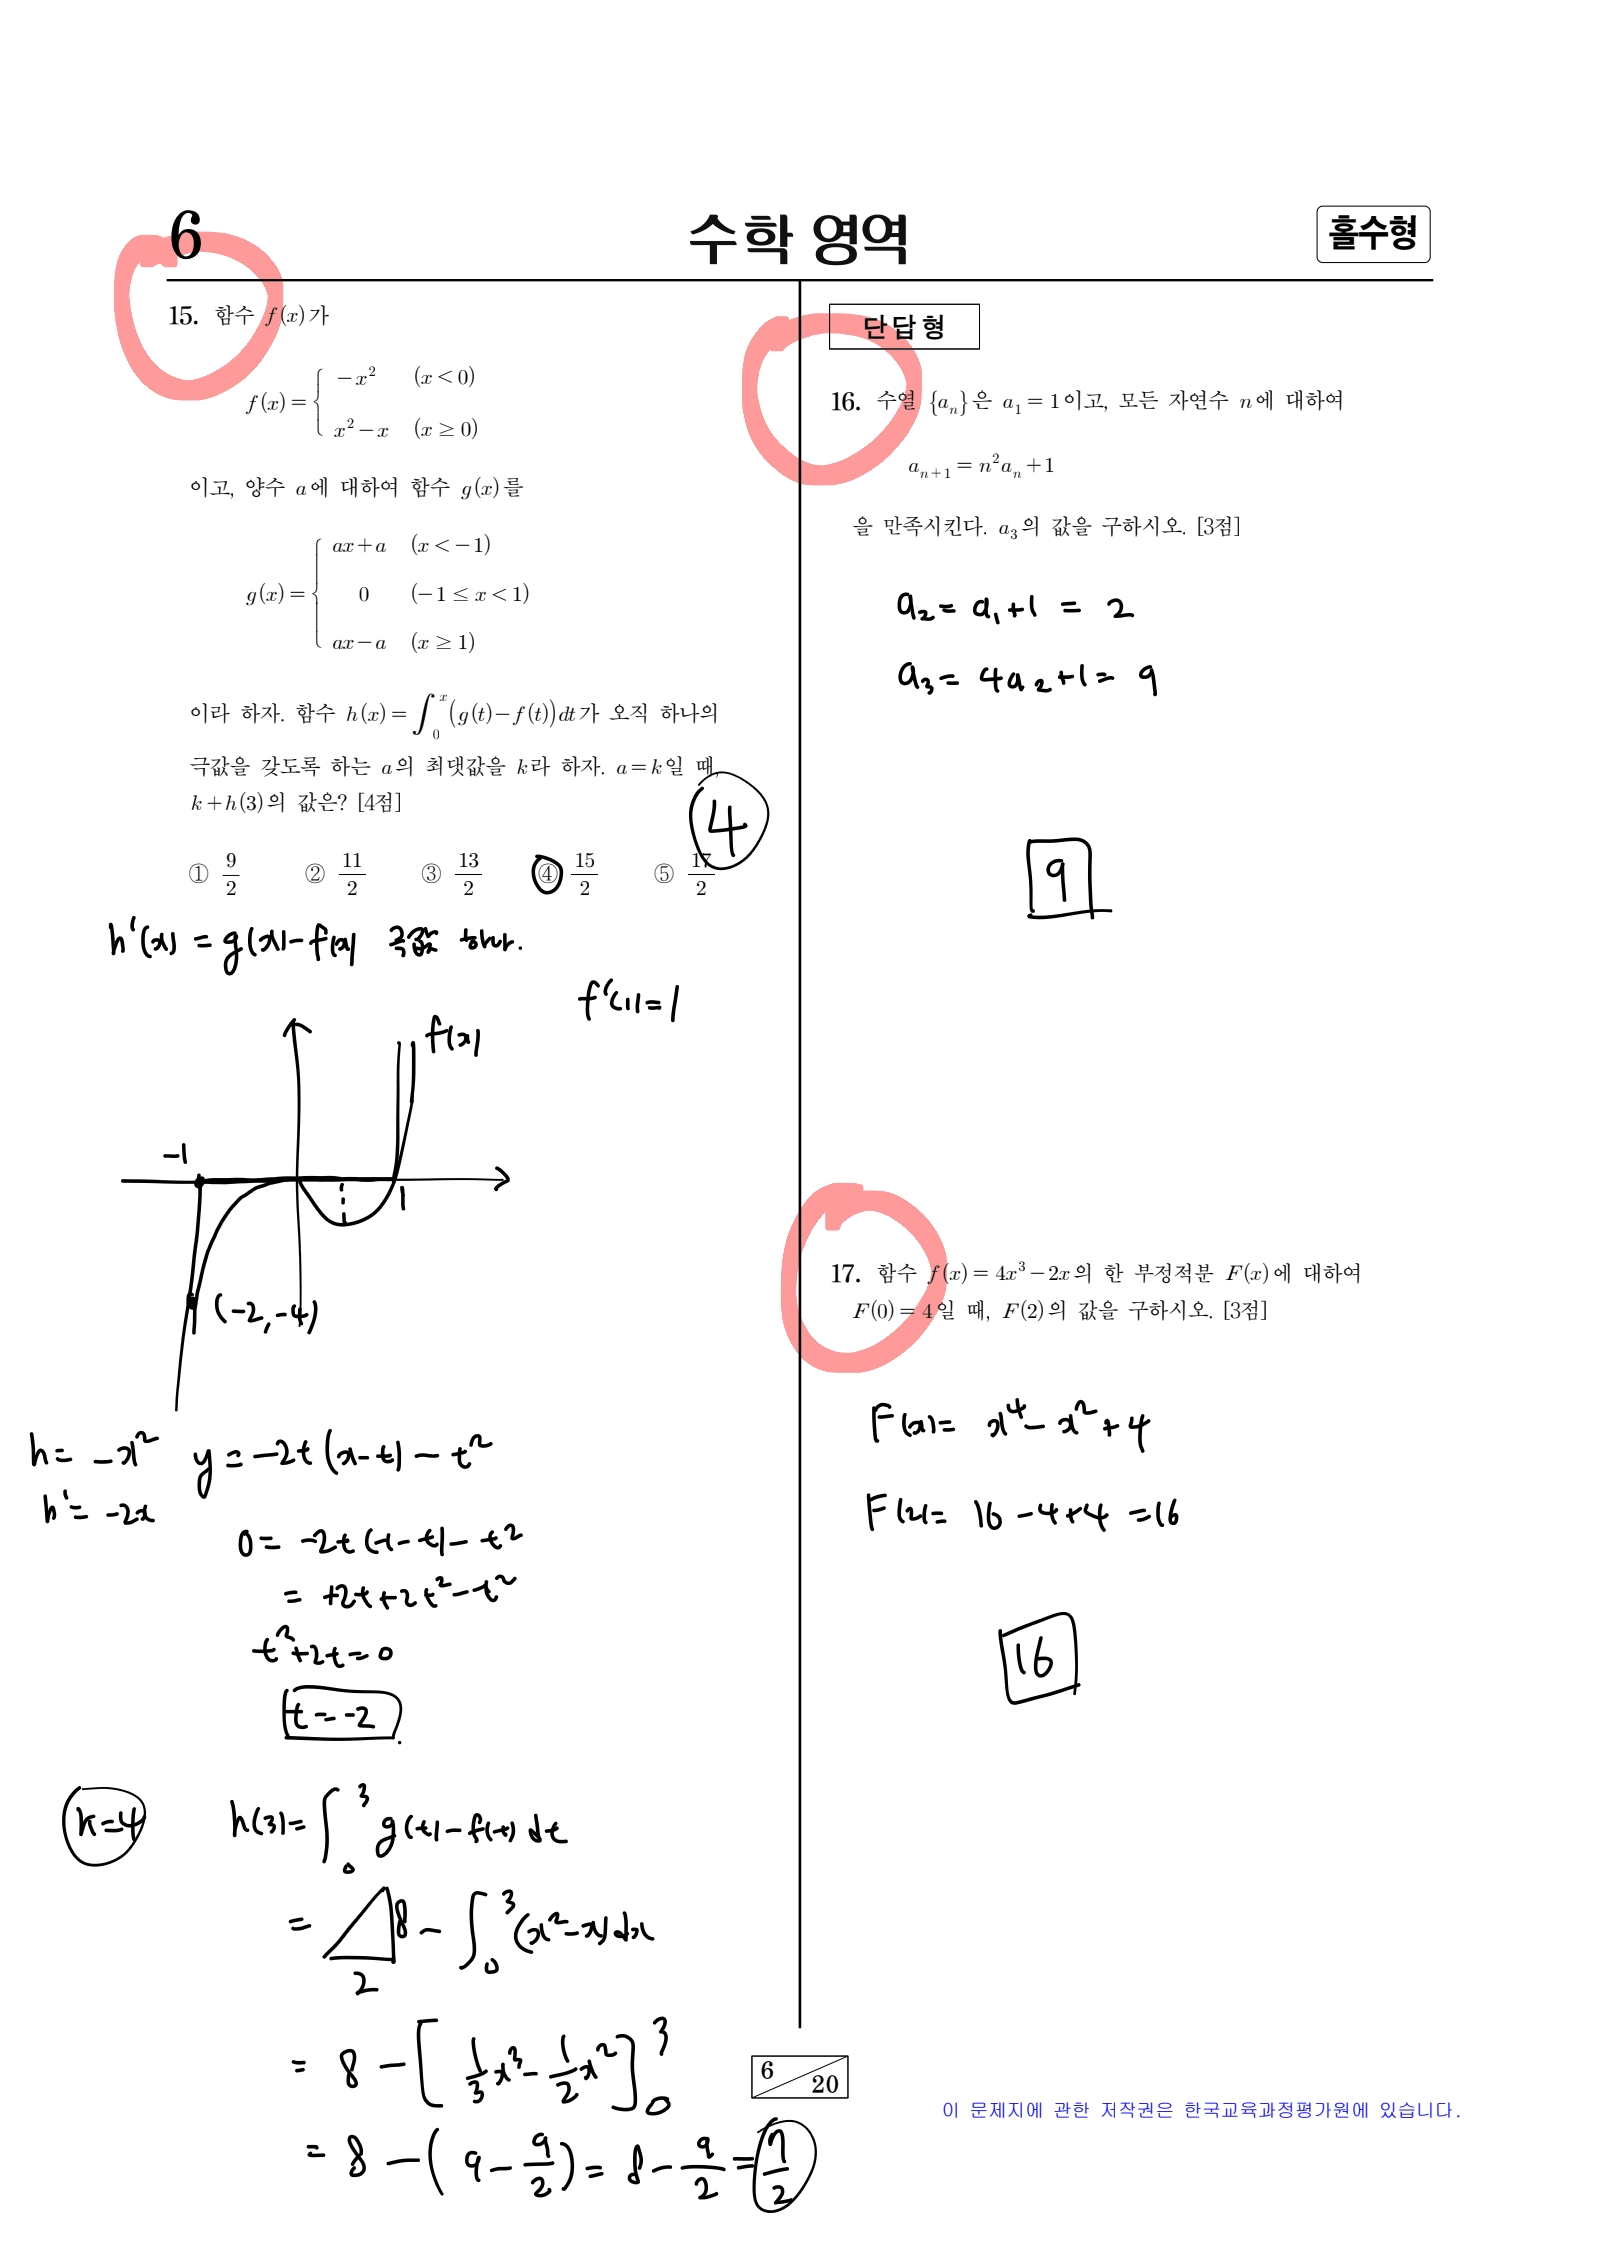 6
수학 영역
홀수형
15. 함수 f(x)가
f(x) = { -x² (x < 0)
x² - x (x ≥ 0)
이고, 양수 a에 대하여 함수 g(x)를
g(x) = { ax + a (x < -1)
0 (-1 ≤ x < 1)
ax - a (x ≥ 1)
이라 하자. 함수 h(x) = ∫₀ˣ (g(t) - f(t))dt가 오직 하나의
극값을 갖도록 하는 a의 최댓값을 k라 하자. a = k일 때,
k + h(3)의 값은? [4점]
4
① 9/2 ② 11/2 ③ 13/2 ④ 15/2 ⑤ 17/2
h'(x) = g(x) - f(x) 극값 하나.
f'(1) = 1
f(x)
-1
1
(-2, -4)
h = -x² y = -2t(x-t) - t²
h' = -2x
0 = -2t(-1-t) - t²
= +2t + 2t² - t²
t² + 2t = 0
t = -2
k = 4
h(3) = ∫₀³ g(t) - f(t) dt
= 8 - ∫₀³ (x² - x) dx
2
= 8 - [1/3 x³ - 1/2 x²]₀³
= 8 - (9 - 9/2) = 8 - 9/2 = 7/2
단답형
16. 수열 {aₙ}은 a₁ = 1이고, 모든 자연수 n에 대하여
aₙ₊₁ = n²aₙ + 1
을 만족시킨다. a₃의 값을 구하시오. [3점]
a₂ = a₁ + 1 = 2
a₃ = 4a₂ + 1 = 9
9
17. 함수 f(x) = 4x³ - 2x의 한 부정적분 F(x)에 대하여
F(0) = 4일 때, F(2)의 값을 구하시오. [3점]
F(x) = x⁴ - x² + 4
F(2) = 16 - 4 + 4 = 16
16
6
20
이 문제지에 관한 저작권은 한국교육과정평가원에 있습니다.